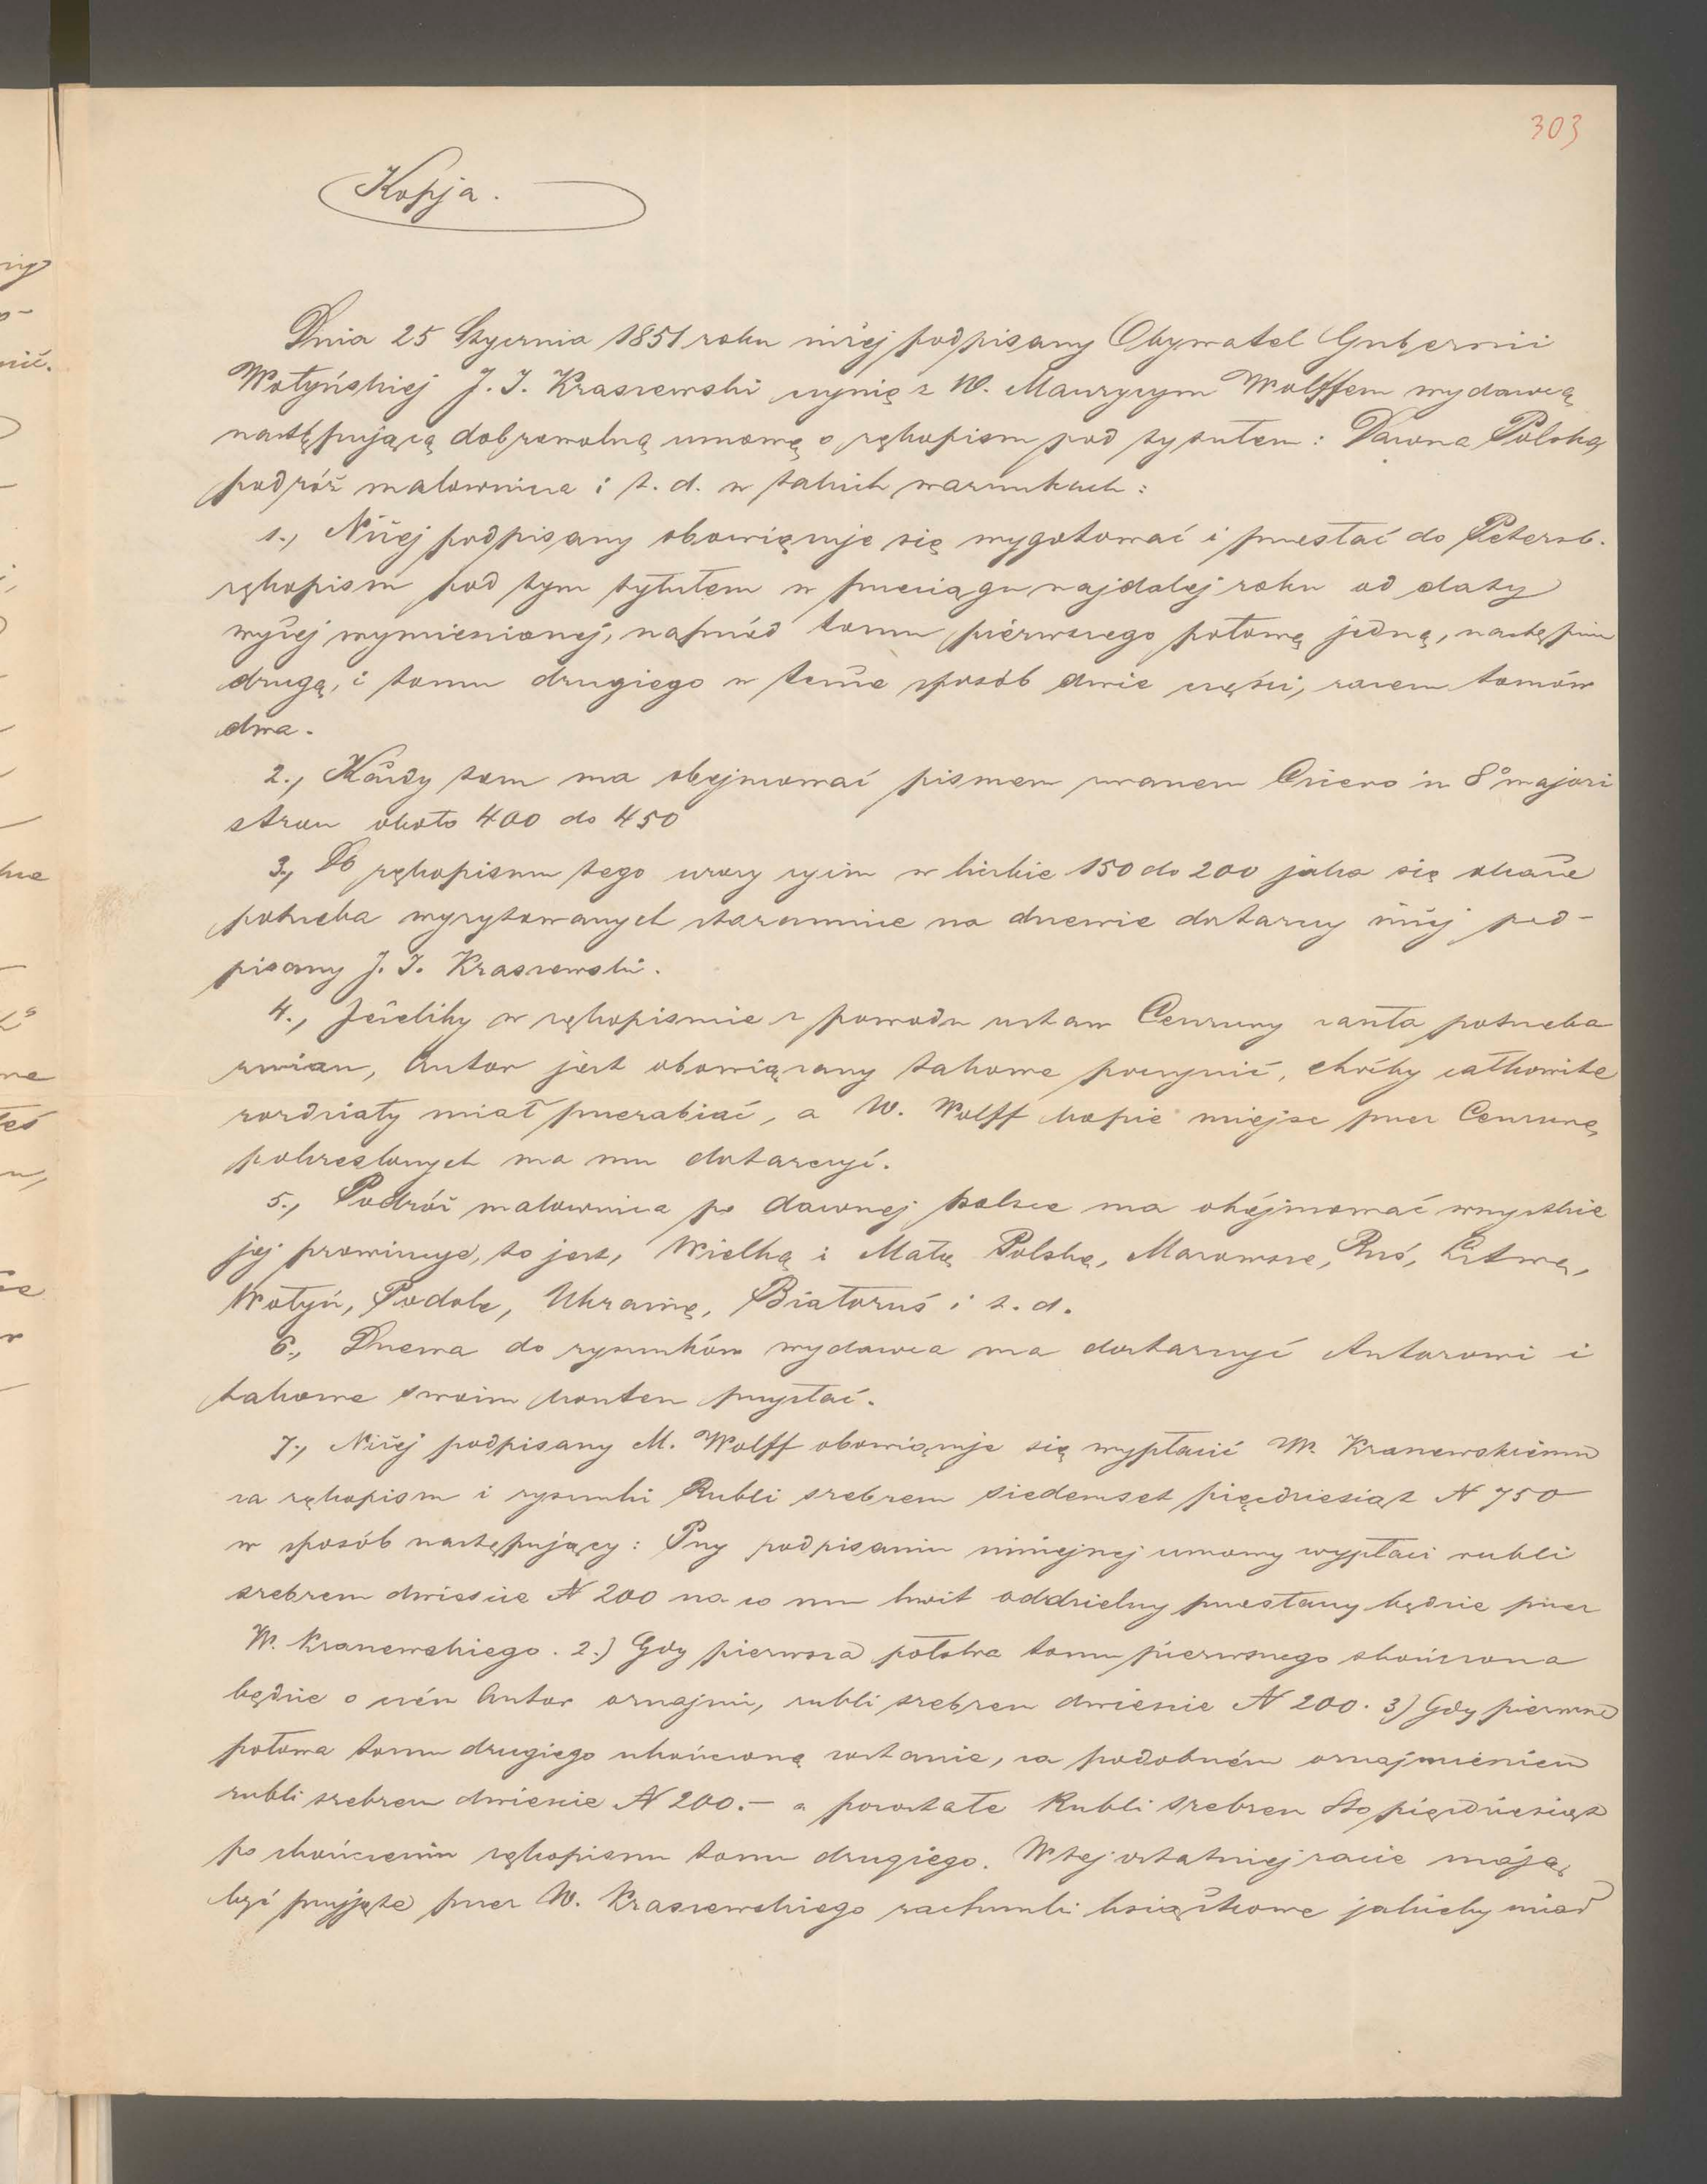 303
Kopja.
Dnia 25 Stycznia 1851 roku niżej podpisany Obywatel Gubernii
Wołyńskiej J. I. Kraszewski czynię z W. Maurycym Wolffem wydawcą
następującą dobrowolną umowę o rękopism pod tytułem: Dawna Polska
podróż malownicza i t. d. w takich warunkach:
1., Niżej podpisany obowiązuje się wygotować i przesłać do Petersb.
rękopism pod tym tytułem w przeciągu najdalej roku od daty
wyżej wymienionej, naprzód tomu pierwszego połowę jedną, następnie
drugą, i tomu drugiego w tenże sposób dwie części, razem tomów
dwa.
2., Każdy tom ma obejmować pismem zwanem Cicero in 8° majori
stron około 400 do 450
3., Do rękopismu tego wzory rycin w liczbie 150 do 200 jaka się okaże
potrzeba wyrytowanych starannie na drzewie dostarczy niżej pod-
pisany J. I. Kraszewski.
4., Jeżeliby w rękopismie z powodu ustaw Cenzury zaszła potrzeba
zmian, Autor jest obowiązany takowe poczynić, choćby całkowite
rozdziały miał przerabiać, a W. Wolff kopie miejsc przez Cenzurę
pokreslonych ma mu dostarczyć.
5., Podróż malownicza po dawnej Polsce ma obéjmować wszystkie
jej prowincye, to jest, Wielką i Małą Polskę, Mazowsze, Ruś, Litwę,
Wołyń, Podole, Ukrainę, Białoruś i t. d.
6., Drzewa do rysunków wydawca ma dostarczyć Autorowi i
takowe swoim kosztem przysłać.
7., Niżej podpisany M. Wolff obowiązuje się wypłacić W. Kraszewskiemu
za rękopism i rysunki Rubli srebrem siedemset pięćdziesiąt N 750
w sposób następujący: Przy podpisaniu niniejszej umowy wypłaci rubli
srebrem dwieście N 200 na co mu kwit oddzielny przesłany będzie przez
W. Kraszewskiego. 2.) Gdy pierwsza połowa tomu pierwszego skończona
będzie o czém Autor oznajmi, rubli srebrem dwieście N 200. 3) Gdy pierwsza
połowa tomu drugiego ukończoną zostanie, za podobném oznajmieniem
rubli srebrem dwieście N 200.- a pozostałe Rubli srebrem Sto pięćdziesiąt
po skończeniu rękopismu tomu drugiego. W tej ostatniej racie mają
być przyjęte przez W. Kraszewskiego rachunki książkowe jakieby miał